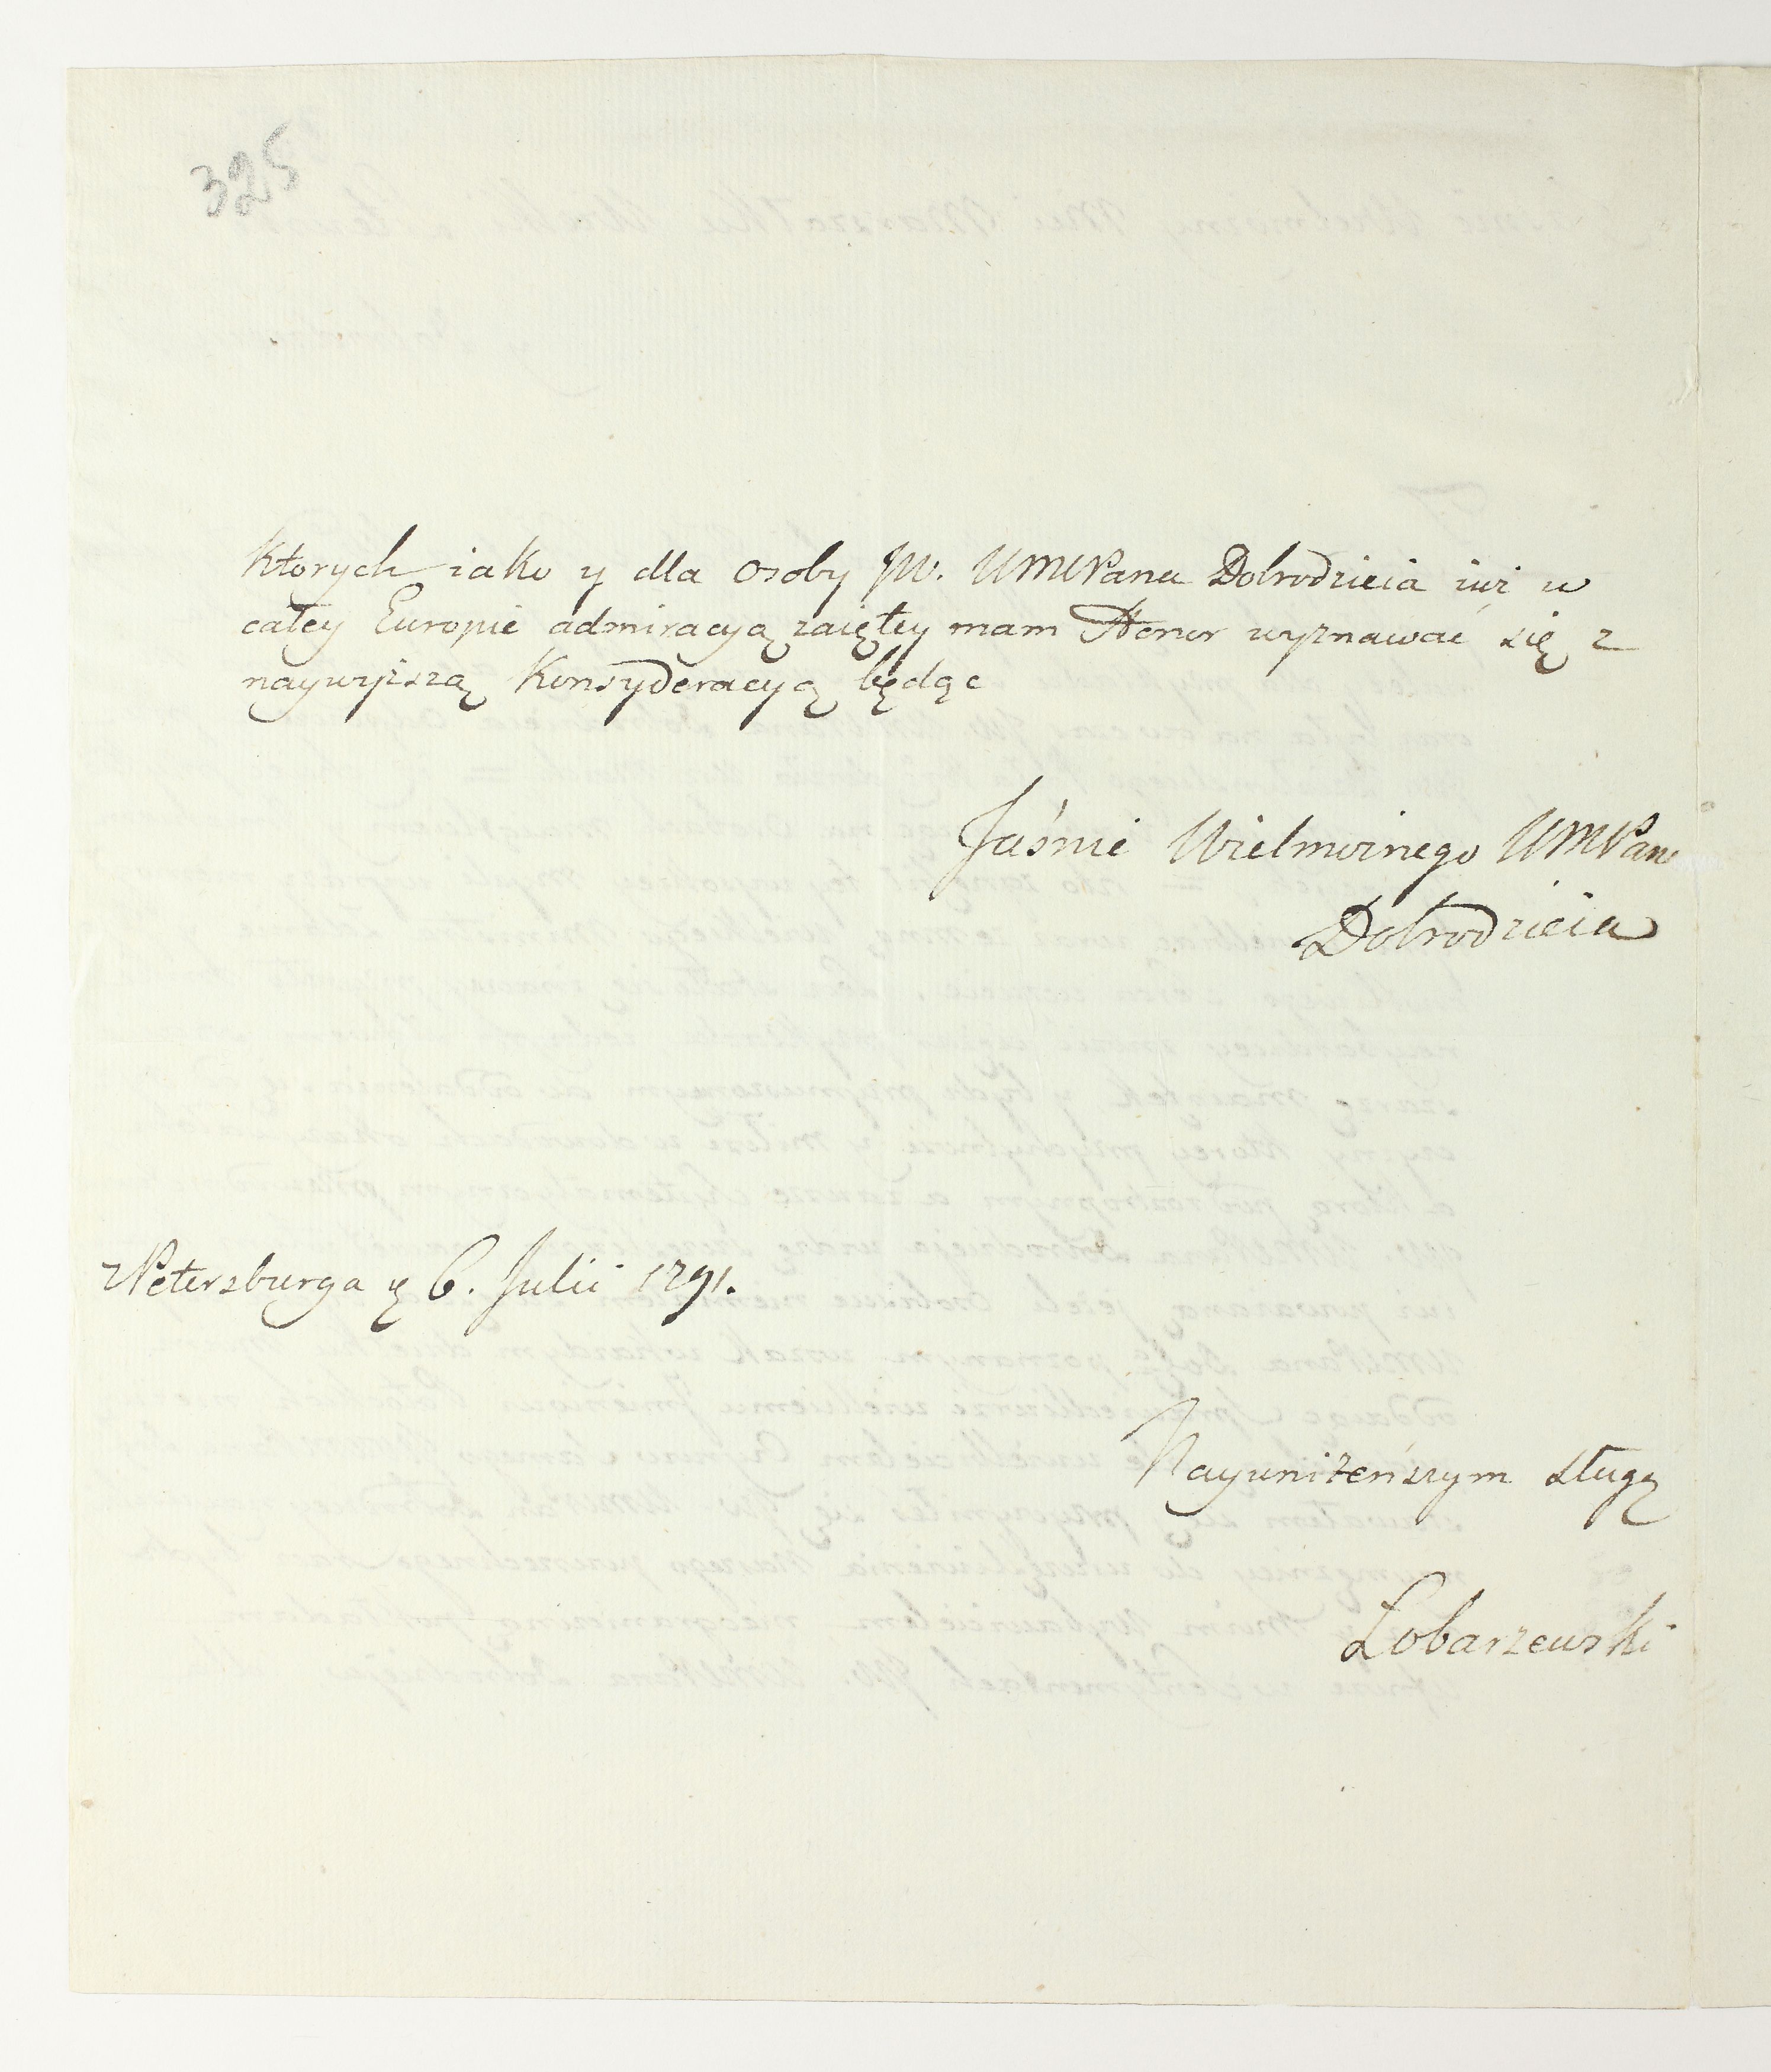 325
Ktorych iako y dla Osoby JW. WMWPana Dobrodzieia iuż w
całey Europie admiracyą zaiętey mam Honor wyznawać się z
naywyższą Konsyderacyą będąc
Jaśnie Wielmożnego WMWPana
Dobrodzieia
z Petersburga 6. Julii 1791.
Nayuniżeńszym sługą
Łobarzewski